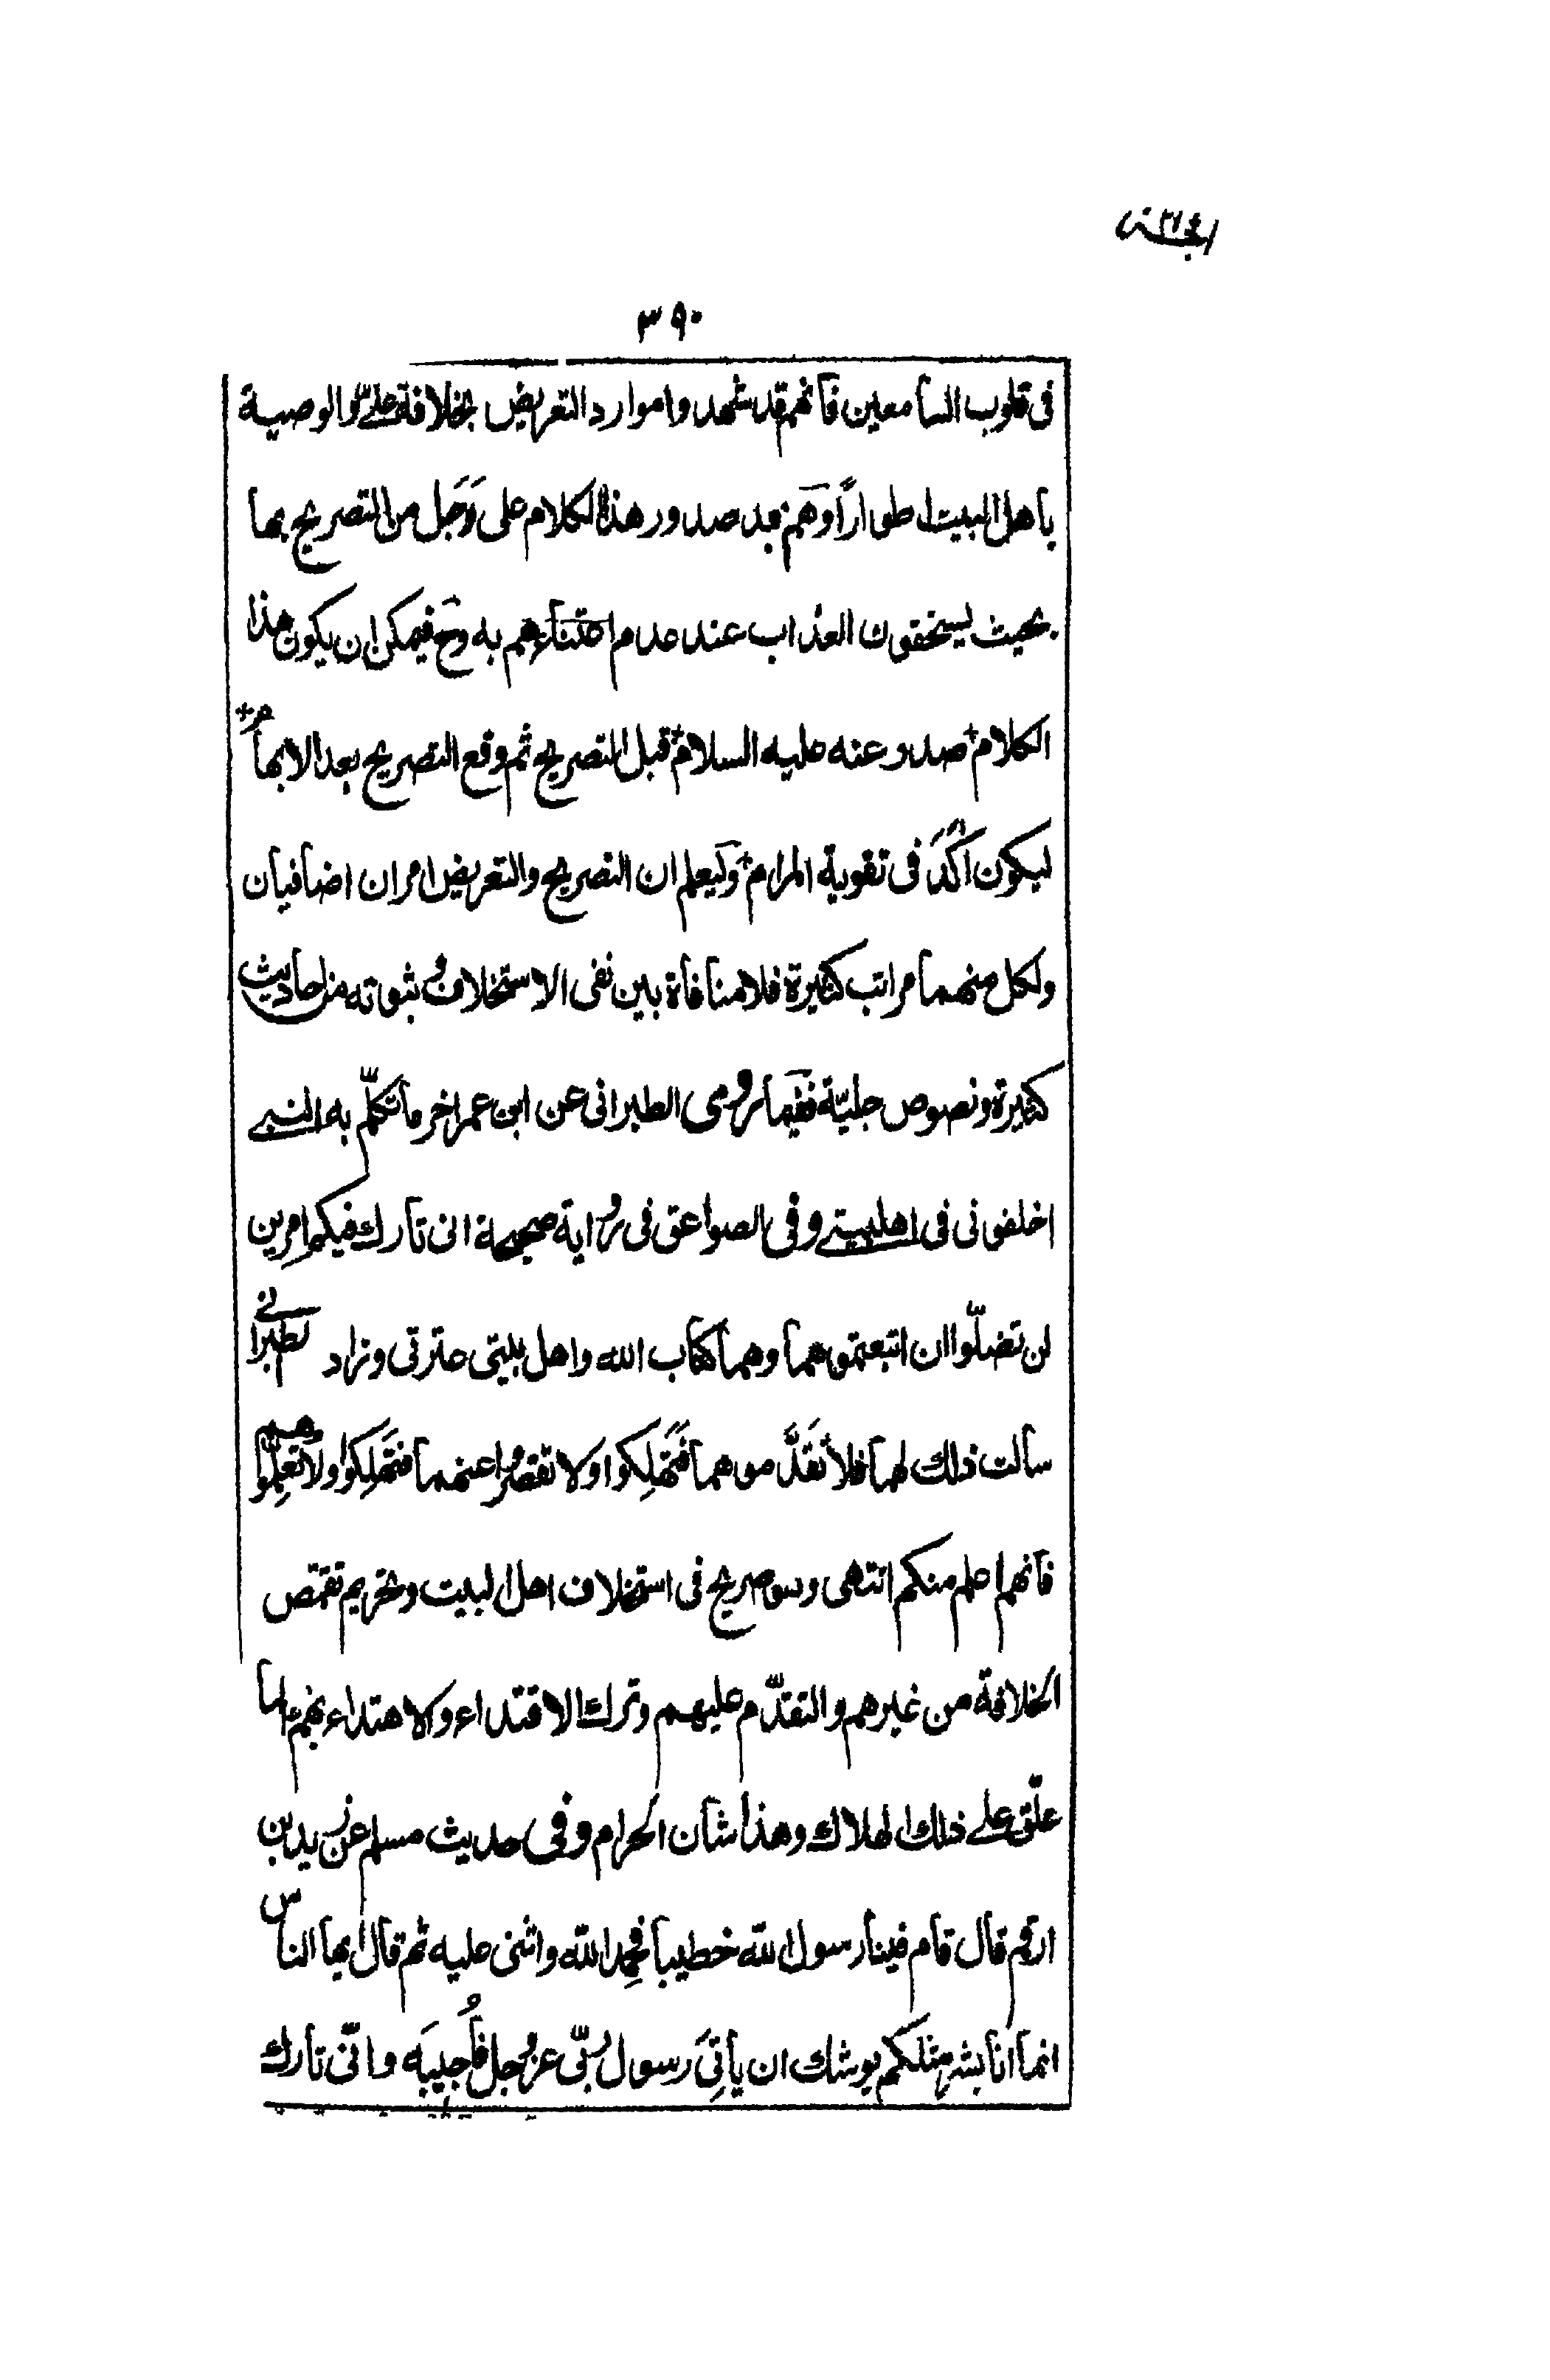 ٣٩٠
فى قلوب السامعين فانهم قد شهدوا موارد التعريض بخلافة على والوصية
باهل البيت اطوارًا وَهم بعد صدور هذا الكلام على وَجَل من التصريح بها
بحيث يستحقون العذاب عند عدم اعتناءهم به وح فيمكن ان يكون هذا
الكلام صدر عنه عليه السلام قبل التصريح ثم وقع التصريح بعد الابهام
ليكون اٰكَدَ فى تقوية المرام وَليعلم ان التصريح والتعريض امران اضافيان
ولكل منهما مراتب كثيرة فلا منافاة بين نفى الاستخلاف وثبوته من احاديث
كثيرة ونصوص جليّة فَفيما روى الطبرانى عن ابن عمر اخر ما تكلّم به النبي
اخلفونى فى اهلبيتي وفى الصواعق فى رواية صحيحة انى تارك فيكم امرين
لن تضلّوا ان اتبعتموهما وهما كتاب الله واهل بيتى عترتى وزاد لطبرانے
سالت ذلك لهما فلا تَقَدَّموهما فَتَهلِكوا ولا تقصروا عنهما فتَهلِكوا ولا تعلِّموهم
فانهم اعلم منكم انتهى وهو صريح فى استخلاف اهل البيت وتحريم تقمّص
الخلافة من غيرهم والتقدّم عليهم وترك الاقتداء والاهتداء بهم لما
علّق على ذلك الهلاك وهذا شان الحرام وفى حديث مسلم عن زيد بن
ارقم قال قام فينا رسول الله خطيبا فحمِد الله واثنى عليه ثم قال ايها الناس
انما انا بشر مثلكم يوشك ان ياتِىَ رسول ربّى عز وجل فاُجيبَه وانّى تارك